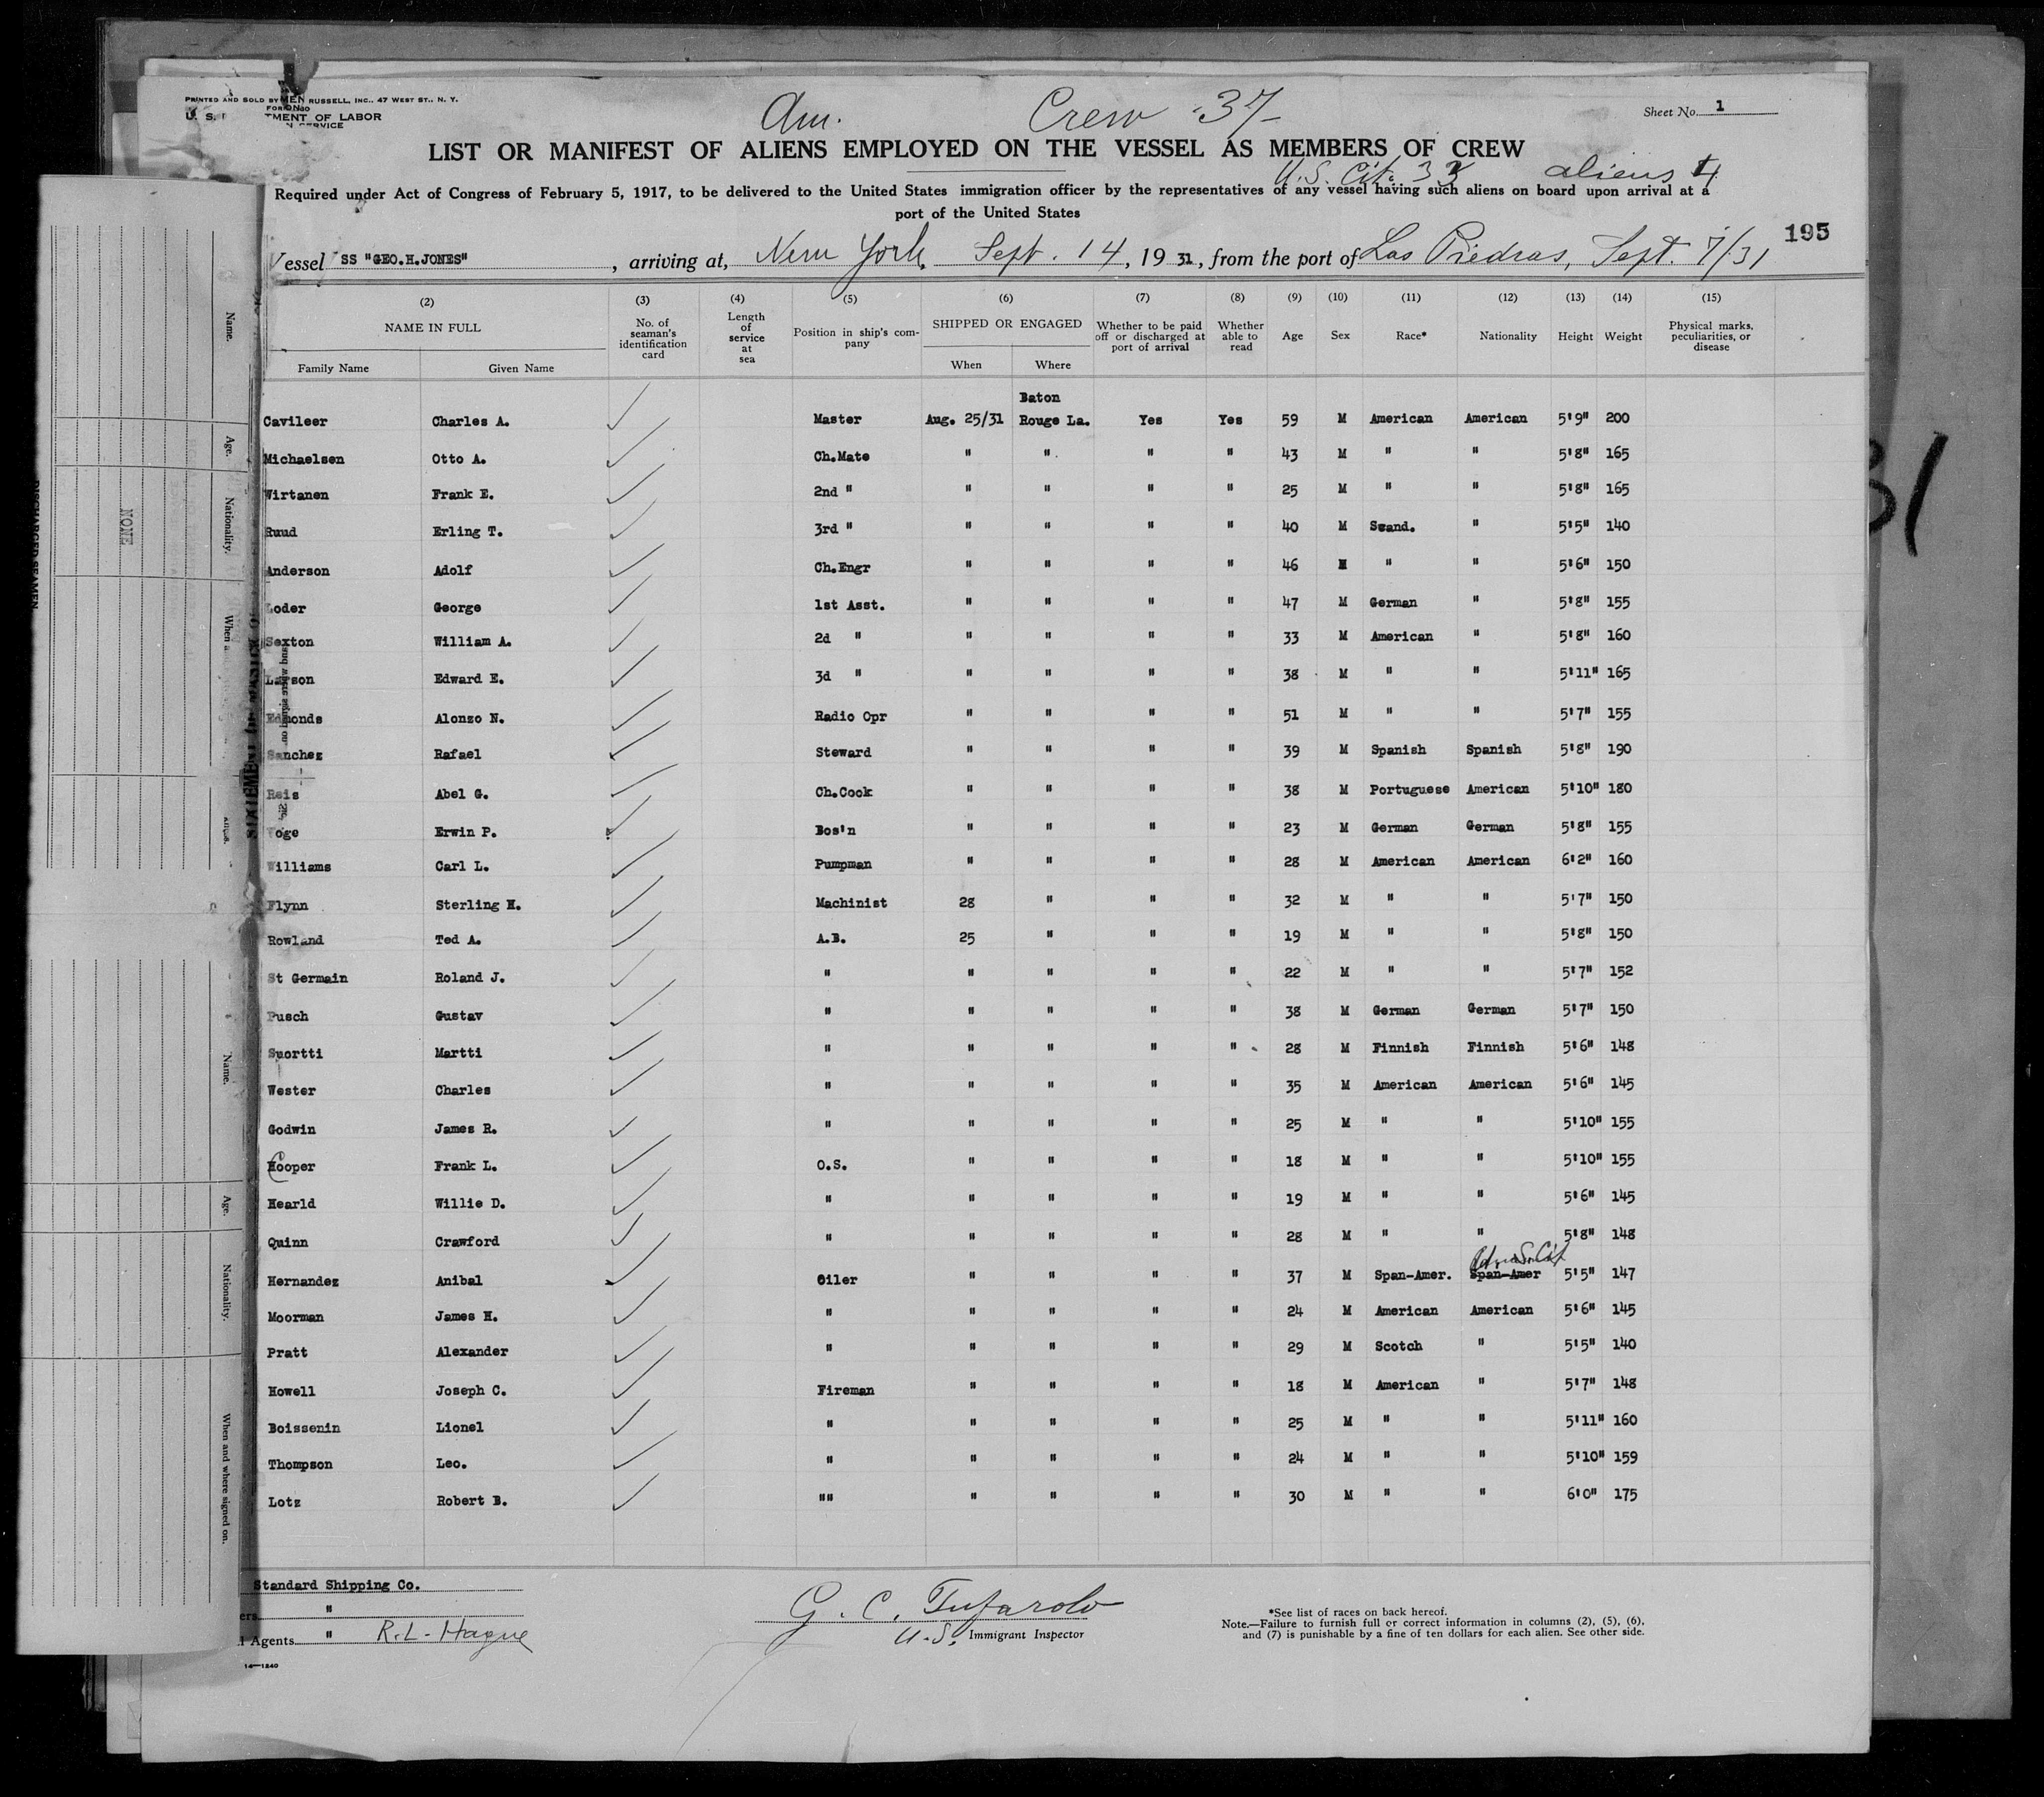 PRINTED AND SOLD BY MEN RUSSELL, INC., 47 WEST ST., N. Y.
U. S. TMENT OF LABOR
Sheet No. 1
Am. Crew 37
LIST OR MANIFEST OF ALIENS EMPLOYED ON THE VESSEL AS MEMBERS OF CREW
U.S. Cit. 33 aliens 4
Required under Act of Congress of February 5, 1917, to be delivered to the United States immigration officer by the representatives of any vessel having such aliens on board upon arrival at a
port of the United States
195
Vessel SS "GEO.H.JONES", arriving at, New York, Sept. 14, 1931, from the port of Las Piedras, Sept. 7/31
(2) (3) (4) (5) (6) (7) (8) (9) (10) (11) (12) (13) (14) (15)
NAME IN FULL No. of seaman's identification card Length of service at sea Position in ship's company SHIPPED OR ENGAGED Whether to be paid off or discharged at port of arrival Whether able to read Age Sex Race* Nationality Height Weight Physical marks, peculiarities, or disease
Family Name Given Name When Where
Baton
Cavileer Charles A. Master Aug. 25/31 Rouge La. Yes Yes 59 M American American 5'9" 200
Michaelsen Otto A. Ch.Mate " " " " 43 M " " 5'8" 165
Wirtanen Frank E. 2nd " " " " " 25 M " " 5'8" 165
Ruud Erling T. 3rd " " " " " 40 M Scand. " 5'5" 140
Anderson Adolf Ch.Engr " " " " 46 M " " 5'6" 150
Loder George 1st Asst. " " " " 47 M German " 5'8" 155
Sexton William A. 2d " " " " " 33 M American " 5'8" 160
Larson Edward E. 3d " " " " " 38 M " " 5'11" 165
Edmonds Alonzo N. Radio Opr " " " " 51 M " " 5'7" 155
Sanchez Rafael Steward " " " " 39 M Spanish Spanish 5'8" 190
Reis Abel G. Ch.Cook " " " " 38 M Portuguese American 5'10" 180
Voge Erwin P. Bos'n " " " " 23 M German German 5'8" 155
Williams Carl L. Pumpman " " " " 28 M American American 6'2" 160
Flynn Sterling H. Machinist 28 " " " 32 M " " 5'7" 150
Rowland Ted A. A.B. 25 " " " 19 M " " 5'8" 150
St Germain Roland J. " " " " " 22 M " " 5'7" 152
Pusch Gustav " " " " " 38 M German German 5'7" 150
Suortti Martti " " " " " 28 M Finnish Finnish 5'6" 148
Wester Charles " " " " " 35 M American American 5'6" 145
Godwin James R. " " " " " 25 M " " 5'10" 155
Cooper Frank L. O.S. " " " " 18 M " " 5'10" 155
Hearld Willie D. " " " " " 19 M " " 5'6" 145
Quinn Crawford " " " " " 28 M " " 5'8" 148
Hernandez Anibal Oiler " " " " 37 M Span-Amer. Span-Amer 5'5" 147
Moorman James H. " " " " " 24 M American American 5'6" 145
Pratt Alexander " " " " " 29 M Scotch " 5'5" 140
Howell Joseph C. Fireman " " " " 18 M American " 5'7" 148
Boissenin Lionel " " " " " 25 M " " 5'11" 160
Thompson Leo. " " " " " 24 M " " 5'10" 159
Lotz Robert B. "" " " " " 30 M " " 6'0" 175
Standard Shipping Co.
ers "
Agents " R.L. Hague
G. C. Tufarolo
U.S. Immigrant Inspector
*See list of races on back hereof.
Note.—Failure to furnish full or correct information in columns (2), (5), (6),
and (7) is punishable by a fine of ten dollars for each alien. See other side.
14—1240
Name.
Age.
Nationality.
NONE
DISCHARGED SEAMEN
When a
Name.
Age.
Nationality.
When and where signed on.